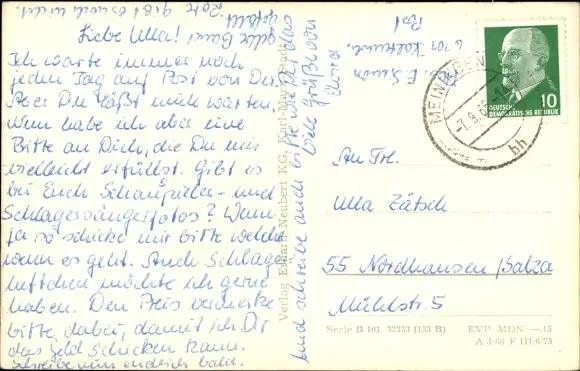 Liebe Ulla!
Ich warte immer noch
jeden Tag auf Post von Dir.
Aber Du läßt mich warten.
Nun habe ich aber eine
Bitte an Dich, die Du mir
vielleicht erfüllst. Gibt es
bei Euch Schauspieler- und
Schlagersängerfotos? Wenn
ja so schicke mir bitte welche
wenn es geht. Auch Schlager
heftchen möchte ich gerne
haben. Den Preis vermerke
bitte dabei, damit ich Dir
das Geld schicken kann.
Schreibe nun endlich bald.
und schreibe auch wie Dir das
gefällt.
Viele Grüße von
Post
Verlag Erhard Neubert KG, Karl-Marx-Stadt
MEININGEN
-7.9.66
bh
DEUTSCHE
DEMOKRATISCHE REPUBLIK
10
An Frl.
Ulla Zätsch
55 Nordhausen/Salza
Mühlstr. 5
Serie B 101 32353 (153 B) EVP MDN —.15
A 3/66 F III/6/75